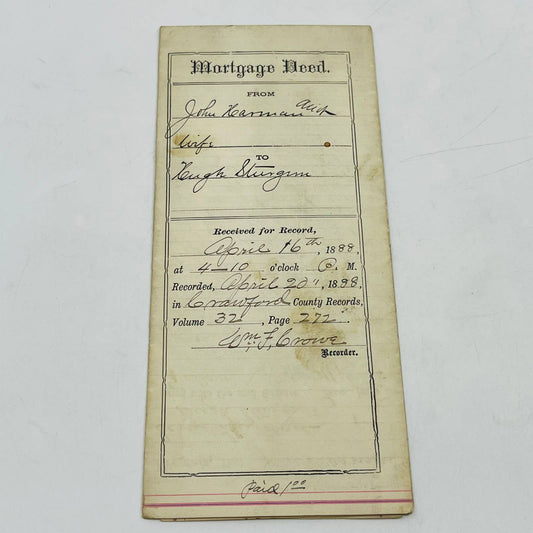 Mortgage Deed.
FROM
John Harman and
wife
TO
Hugh Sturgeon
Received for Record,
April 16th, 1888,
at 4-10 o'clock P. M.
Recorded, April 20", 1888,
in Crawford County Records,
Volume 32, Page 272
Wm. F. Crowe
Recorder.
Paid 1 00